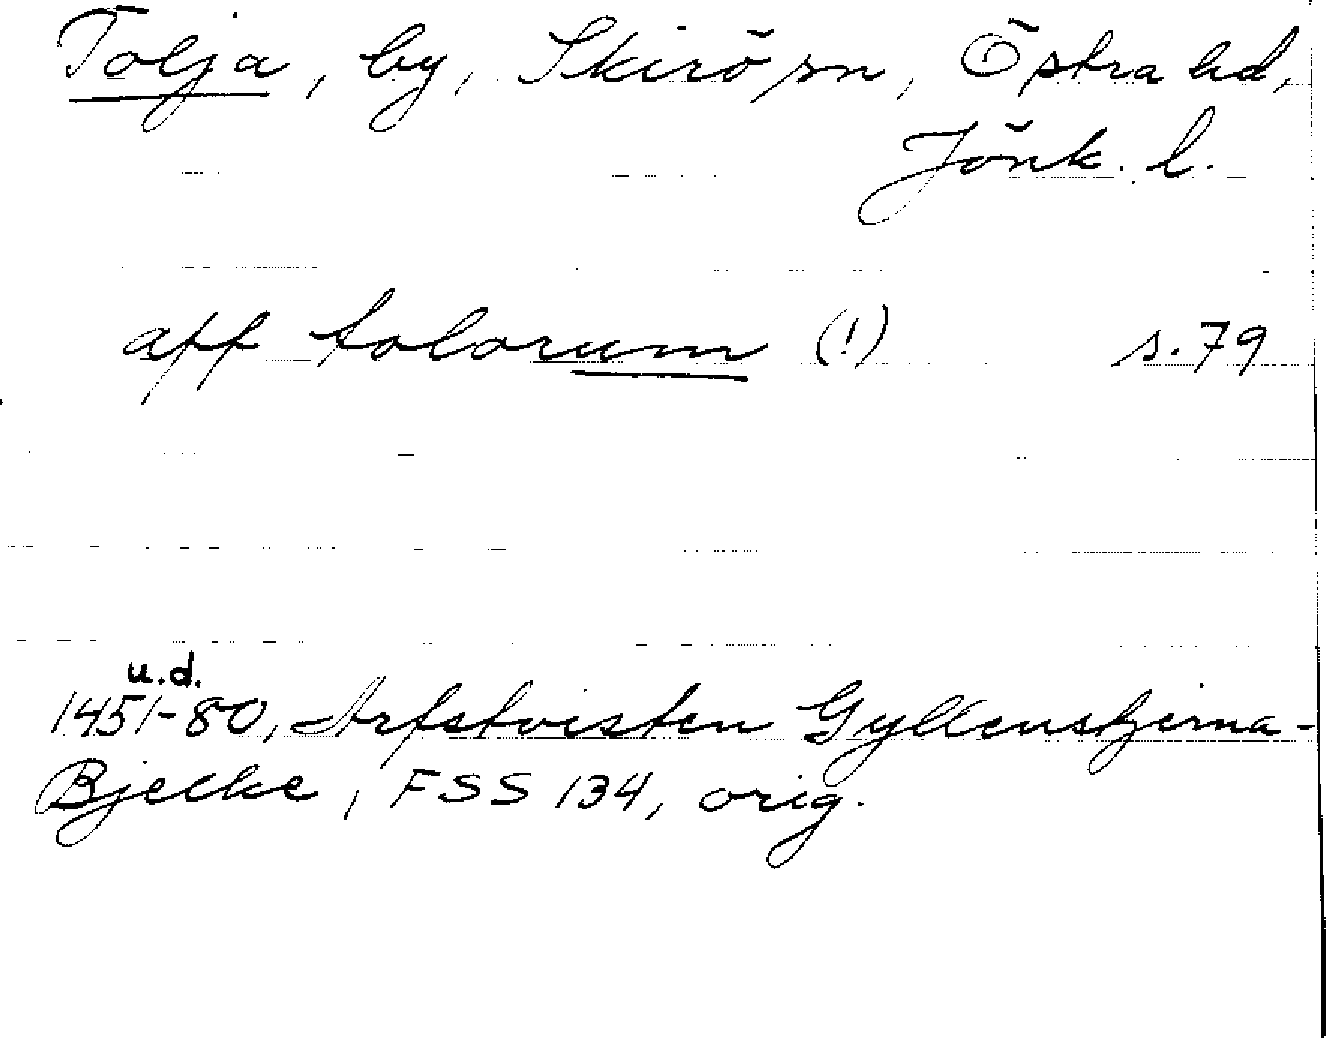 Tolja, by, Skirö sn, Östra hd,
Jönk. l.
aff tolorum (!) s. 79
u.d.
1451-80, Arfstvisten Gyllenstjerna-
Bjelke, FSS 134, orig.